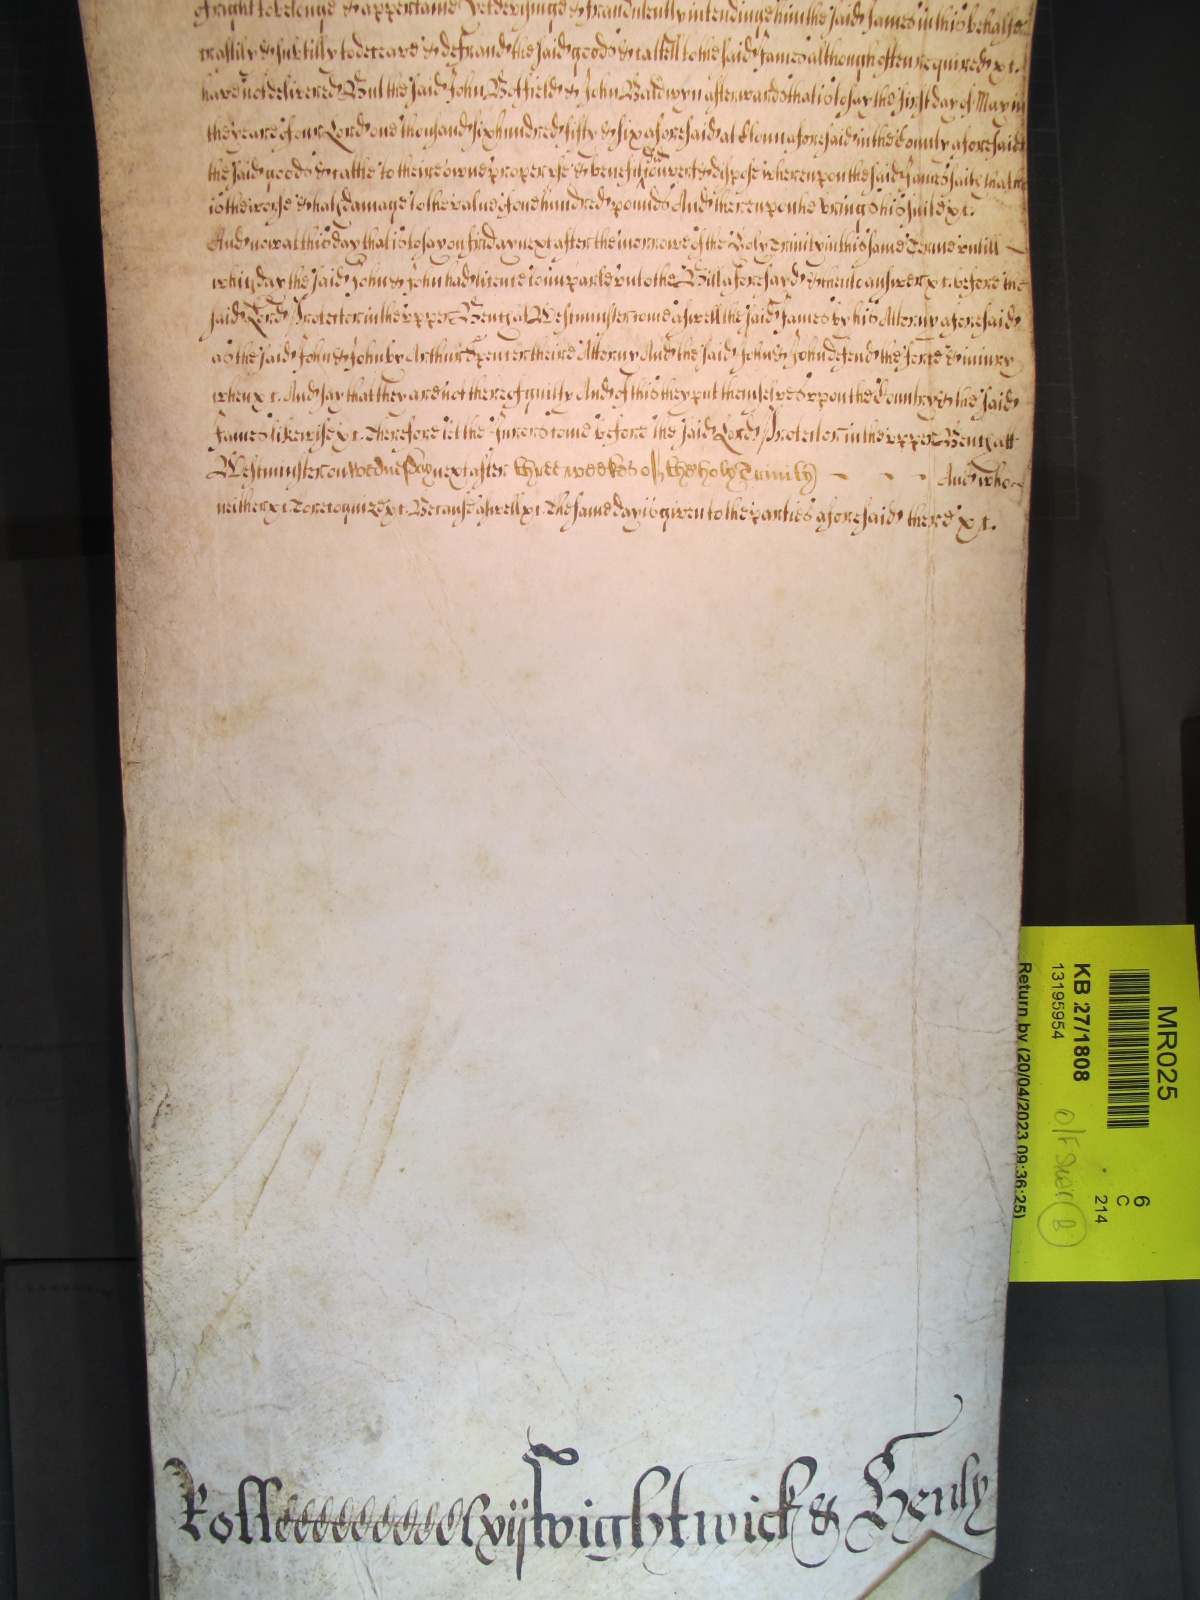 of right to belonge & appertaine Yet devisinge & fraudulently intendinge him the said James in this behalfe
craftily & subtilly to deceave & defraud the said goods & cattell to the said James although often required xc.
have not delivered But the said John Botfield & John Baldwyn afterwards that is to say the first day of May in
the yeare of our Lord one thousand six hundred fifty & six aforesaid at Clonn aforesaid in the County aforesaid
the said goods & cattle to theire owne proper use & benefitt did convert & dispose whereupon the said James saith that he
is the worse & hath damage to the value of one hundred pounds And thereupon he brings his suite xc.
And now at this day that is to say on friday next after the morrowe of the Holy Trinity in this same Terme untill
which day the said John & John had licence to imparle unto the Bill aforesayd & then to answer xc. before the
said Lord Protector in the upper Bench at Westminster come aswell the said James by his Attorny aforesaid
as the said John & John by Arthur Spencer theire Attorny And the said John & John defend the force & iniury
when xc. And say that they are not thereof guilty And of this they put themselves upon the Countrey & the said
James likewise xc. Therefore let the Jurors come before the said Lord Protector in the upper Bench att
Westminster on wednesday next after three weekes of the holy Trinity - - - And who
neither xc. To recognize xc. Because aswell xc. The same day is given to the parties aforesaid there xc.
Roll ccccccccclxij Wightwick & Henly
MR025
KB 27/1808
13195954
6
C
214
Return by (20/04/2023 09:36:25)
B